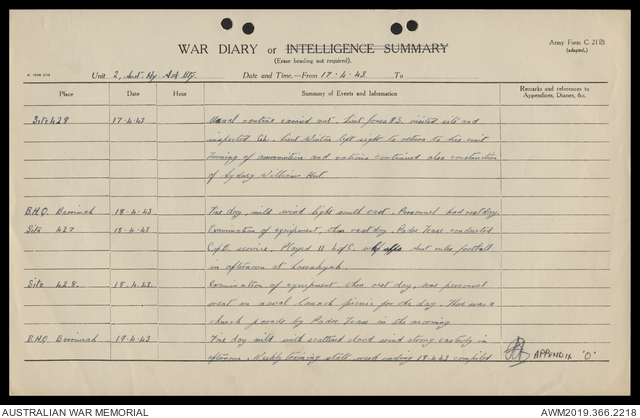 WAR DIARY or INTELLIGENCE SUMMARY
(Erase heading not required).
Army Form C. 2118
(adapted.)
Unit 2, Aust. Hy. A A Bty. Date and Time.—From 17-4-43 To
Place Date Hour Summary of Events and Information Remarks and references to Appendices, Diaries, &c.
Site 428 17-4-43 Usual routine carried out. Lieut Jones visited site and
inspected Lieut Winter left sight to return to his unit
Turning of ammunition and rations continued also construction
of Sydney Williams Hut
B.H.Q. Berrimah 18-4-43 Fine day, mild wind light south east. Personnel had rest day.
Site 427 18-4-43 Examination of equipment, then rest day. Padre conducted
C of E service. Played 11 rules football
in afternoon at Larrakeyah.
Site 428. 18.4.43. Examination of equipment then rest day, some personnel
went on naval launch picnic for the day. There was a
church parade by Padre in the morning
B.H.Q Berrimah 19-4-43 Fine day mild with scattered cloud wind strong easterly in
afternoon. Weekly training state week ending 18.4.43 compiled APPENDIX "O"
AUSTRALIAN WAR MEMORIAL
AWM2019.366.2218